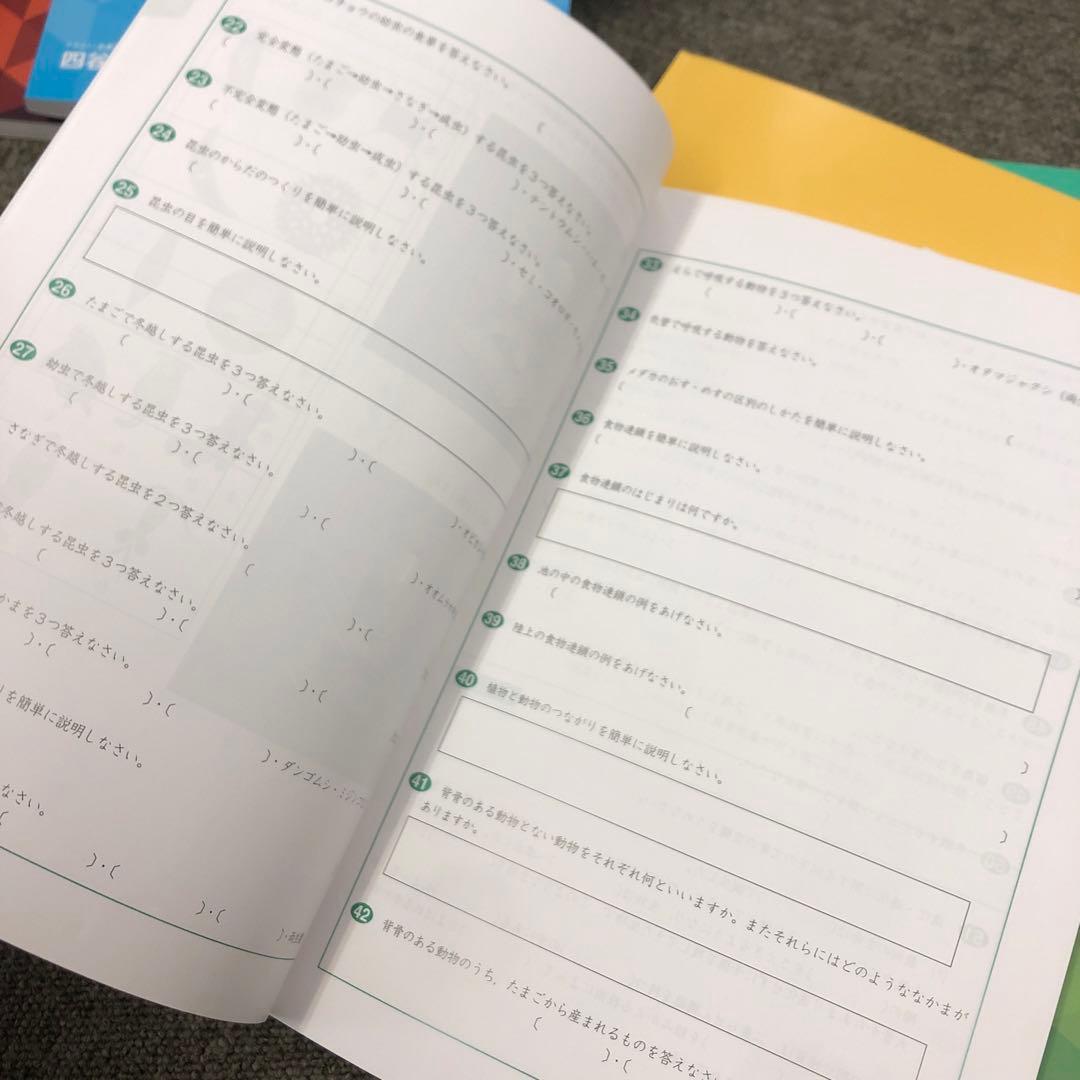 四谷
チョウの幼虫の食草を答えなさい。
(
22 完全変態(たまご→幼虫→さなぎ→成虫)する昆虫を3つ答えなさい。
( )・( )・( )・テントウムシ
23 不完全変態(たまご→幼虫→成虫)する昆虫を3つ答えなさい。
( )・( )・( )・セミ・コオロギ
24 昆虫のからだのつくりを簡単に説明しなさい。
(
25 昆虫の目を簡単に説明しなさい。
26 たまごで冬越しする昆虫を3つ答えなさい。
( )・( )・( )・オビカ
27 幼虫で冬越しする昆虫を3つ答えなさい。
( )・( )・( )・オオムラサキ
さなぎで冬越しする昆虫を2つ答えなさい。
( )・(
冬越しする昆虫を3つ答えなさい。
( )・( )・(
かまを3つ答えなさい。
)・( )・( )・ダンゴムシ・ミジンコ
を簡単に説明しなさい。
なさい。
( )・( )・( )・
33 えらで呼吸する動物を3つ答えなさい。
( )・( )・( )・オタマジャクシ
34 皮膚で呼吸する動物を答えなさい。
(
35 メダカのおす・めすの区別のしかたを簡単に説明しなさい。
(
36 食物連鎖を簡単に説明しなさい。
(
37 食物連鎖のはじまりは何ですか。
38 池の中の食物連鎖の例をあげなさい。
( )
39 陸上の食物連鎖の例をあげなさい。
( )
40 植物と動物のつながりを簡単に説明しなさい。
41 背骨のある動物とない動物をそれぞれ何といいますか。またそれらにはどのようななかまが
ありますか。
42 背骨のある動物のうち、たまごから産まれるものを答えなさい
( )・(